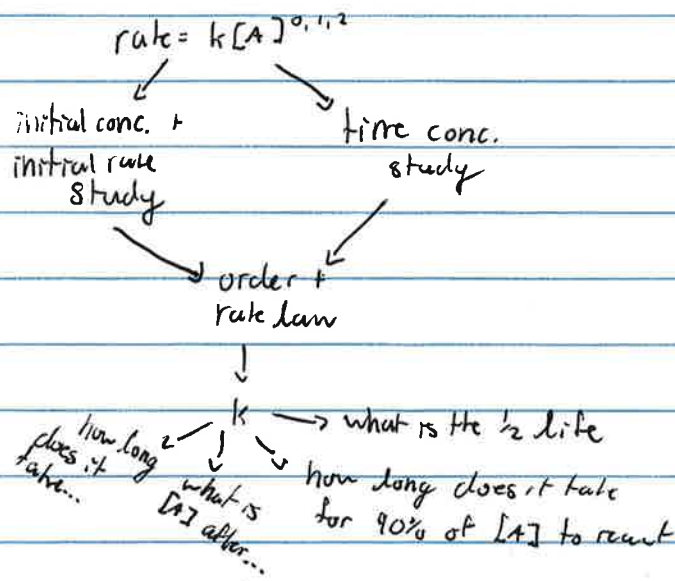 rate = k[A]^0,1,2
initial conc. +
initial rate
study
time conc.
study
order +
rate law
k
what is the ½ life
how long
does it
take...
what is
[A] after...
how long does it take
for 90% of [A] to react